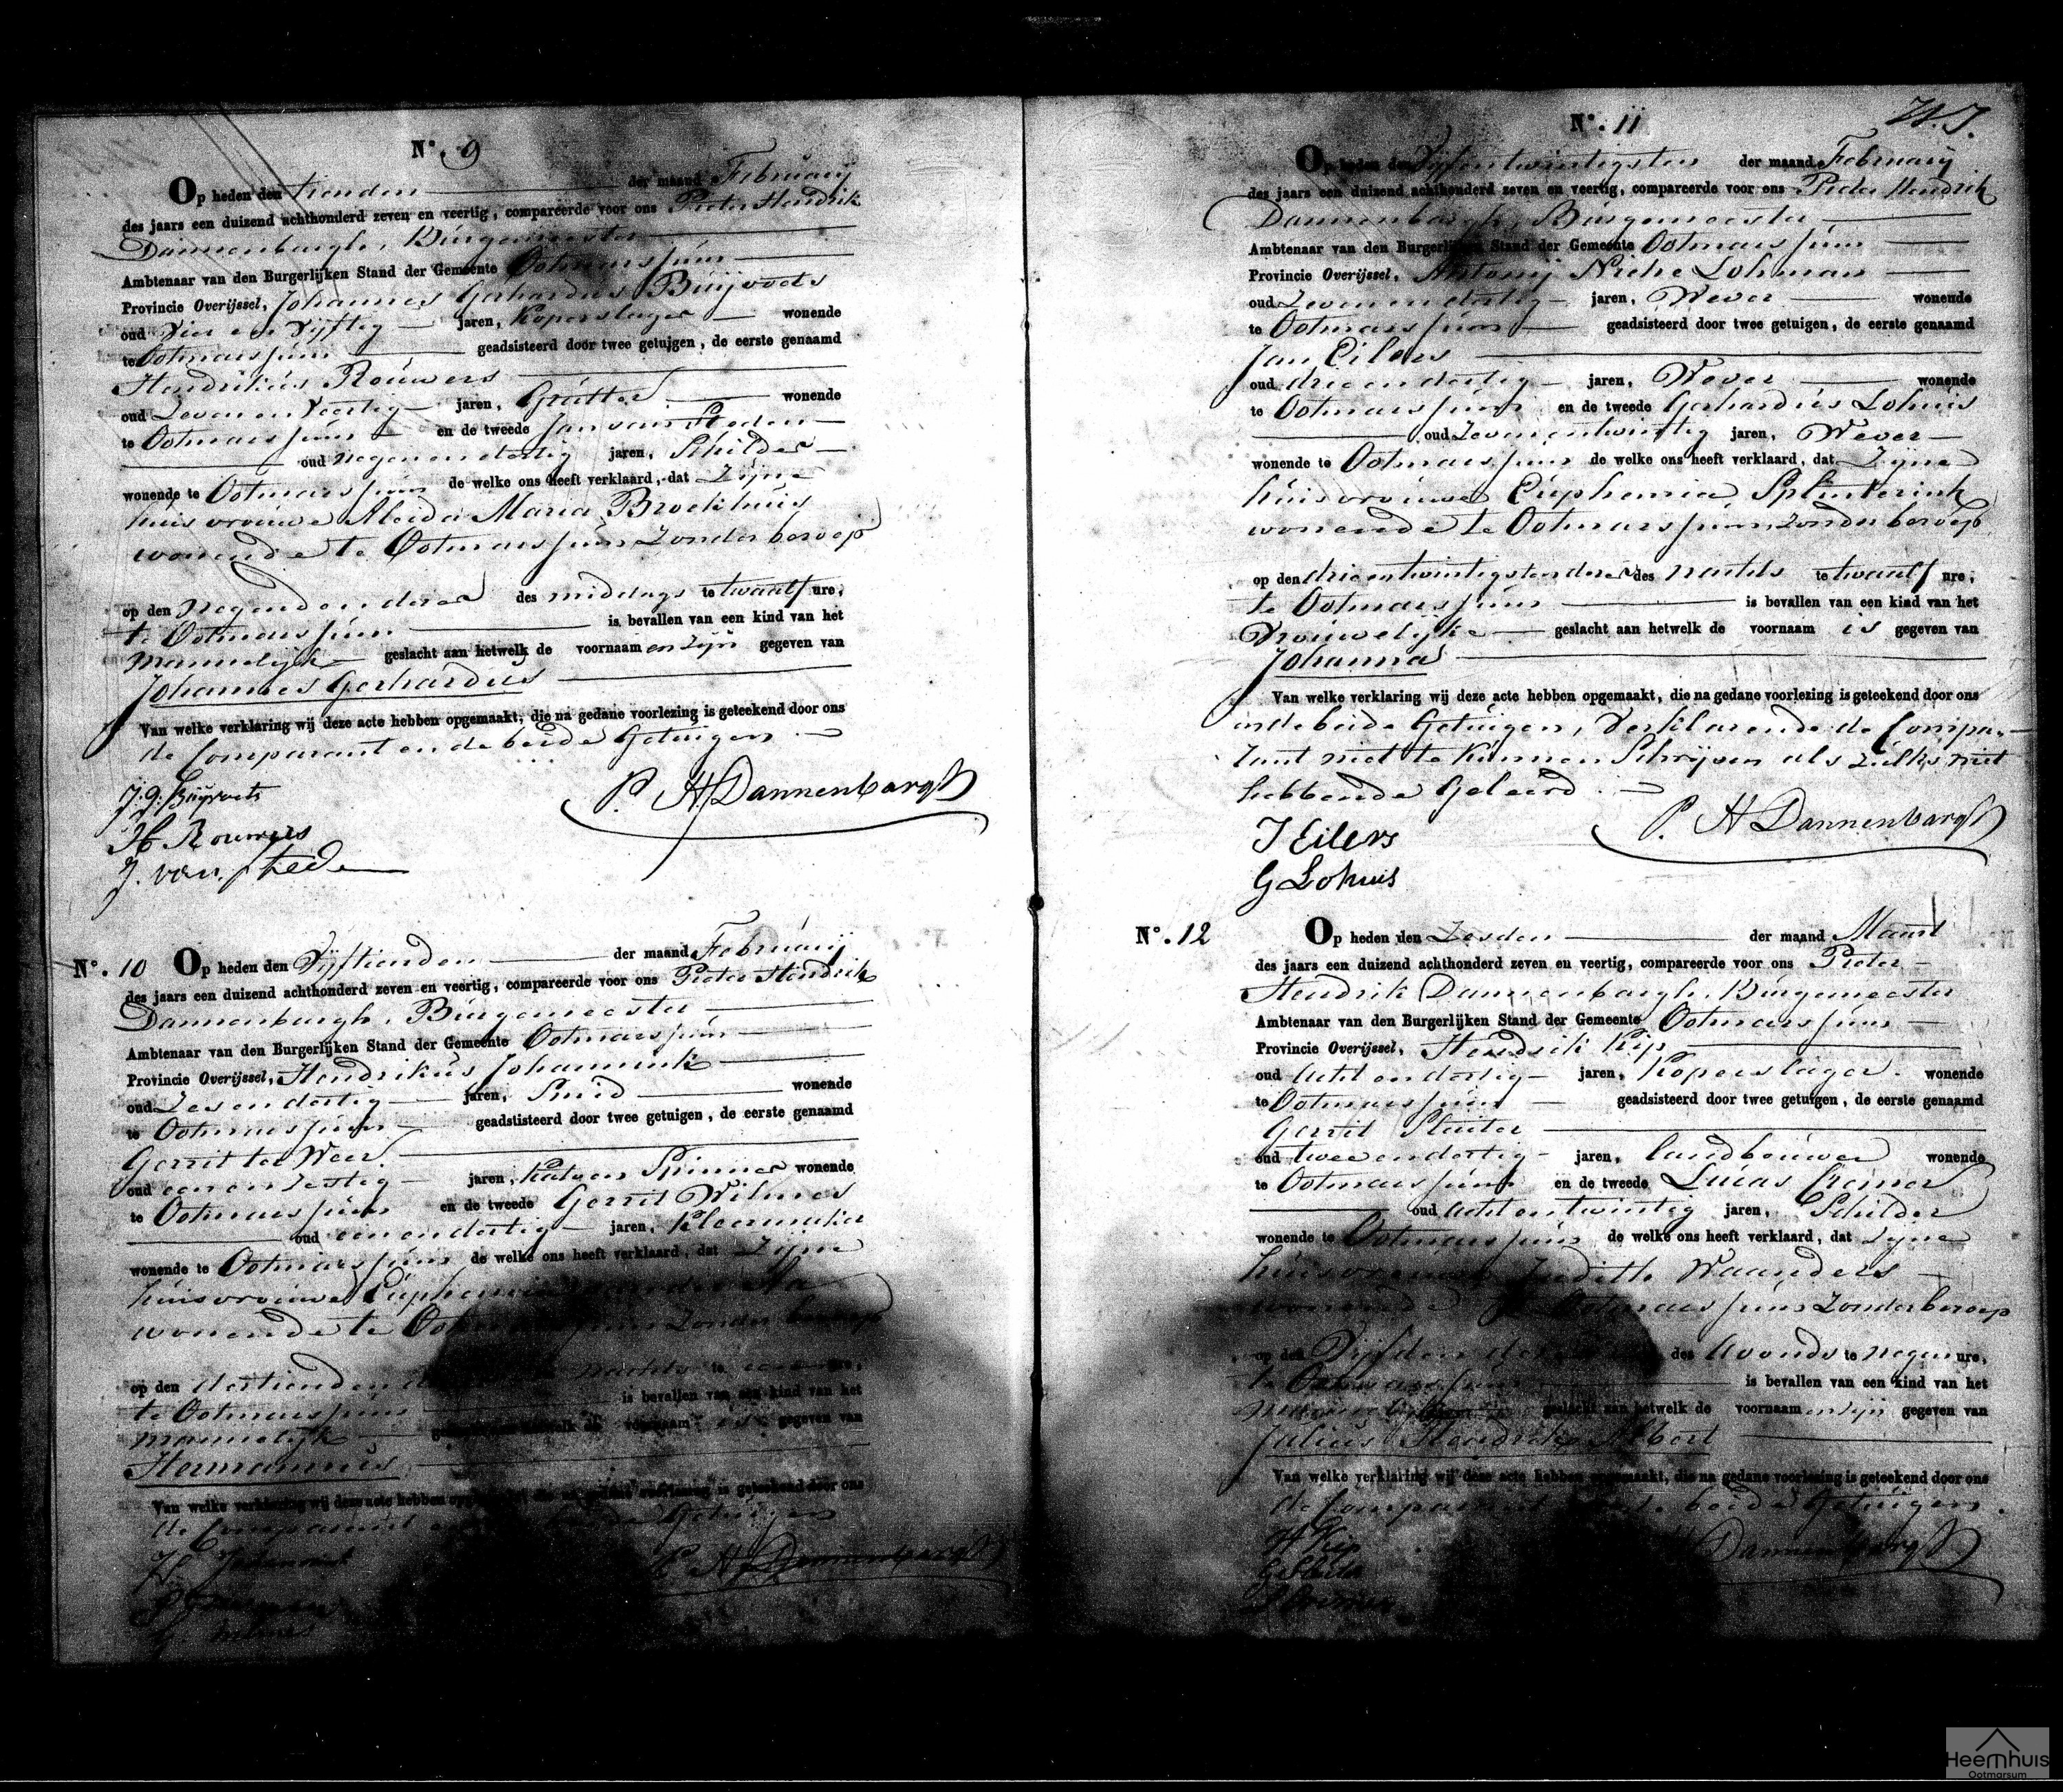 N°. 9
Op heden den tienden der maand Februarij
des jaars een duizend achthonderd zeven en veertig, compareerde voor ons Pieter Hendrik
Dannenbargh, Burgemeester
Ambtenaar van den Burgerlijken Stand der Gemeente Ootmarssum
Provincie Overijssel, Johannes Gerhardus Buijvoets
oud Vier en Vijftig jaren, Koperslager wonende
te Ootmarssum geadsisteerd door twee getuigen, de eerste genaamd
Hendrikus Rouwers
oud Zeven en Veertig jaren, wonende
te Ootmarssum en de tweede Jan van Steden
oud negen en dertig jaren, Schilder
wonende te Ootmarssum de welke ons heeft verklaard, dat Zijne
huisvrouwe Aleida Maria Broekhuis
wonende te Ootmarssum Zonder beroep
op den negenden dezer des middags te twaalf ure,
te Ootmarssum is bevallen van een kind van het
mannelijk geslacht aan hetwelk de voornaam en zijn gegeven van
Johannes Gerhardus
Van welke verklaring wij deze acte hebben opgemaakt, die na gedane voorlezing is geteekend door ons
de Comparant en de beide Getuigen
J. G. Buijvoets
P. H Dannenbargh
H Rouwers
J. van Stede
N°. 10 Op heden den Vijftienden der maand Februarij
des jaars een duizend achthonderd zeven en veertig, compareerde voor ons Pieter Hendrik
Dannenbargh, Burgemeester
Ambtenaar van den Burgerlijken Stand der Gemeente Ootmarssum
Provincie Overijssel, Hendrikus Johannink
oud Zes en dertig jaren, Smid wonende
te Ootmarssum geadstisteerd door twee getuigen, de eerste genaamd
Gerrit ter Weer
oud een en Zestig jaren, Katoen Spinner wonende
te Ootmarssum en de tweede Gerrit Wilmes
oud een en dertig jaren, Kleermaker
wonende te Ootmarssum de welke ons heeft verklaard, dat Zijne
huisvrouwe Euphemia
wonende te Ootmarssum Zonder beroep
op den dertienden nachts te ure,
te Ootmarssum is bevallen van een kind van het
mannelijk geslacht aan hetwelk de voornaam is gegeven van
Hermannus
Van welke verklaring wij deze acte hebben opgemaakt, die na gedane voorlezing is geteekend door ons
de Comparant en de beide Getuigen
P. H Dannenbargh
N°. 11
Op heden den Vijfentwintigsten der maand Februarij
des jaars een duizend achthonderd zeven en veertig, compareerde voor ons Pieter Hendrik
Dannenbargh, Burgemeester
Ambtenaar van den Burgerlijken Stand der Gemeente Ootmarssum
Provincie Overijssel, Antonij Niehe Lohman
oud Zeven en dertig jaren, Wever wonende
te Ootmarssum geadsisteerd door twee getuigen, de eerste genaamd
Jan Eilers
oud drie en dertig jaren, Wever wonende
te Ootmarssum en de tweede Gerhardus Lohuis
oud Zeven en twintig jaren, Wever
wonende te Ootmarssum de welke ons heeft verklaard, dat Zijne
huisvrouwe Euphemia Splinterink
wonende te Ootmarssum Zonder beroep
op den drie en twintigsten dezer des nachts te twaalf ure,
te Ootmarssum is bevallen van een kind van het
Vrouwelijke geslacht aan hetwelk de voornaam is gegeven van
Johanna
Van welke verklaring wij deze acte hebben opgemaakt, die na gedane voorlezing is geteekend door ons
en de beide Getuigen, Verklarende de Compa-
rant niet te kunnen Schrijven als zulks niet
hebbende Geleerd
P. H Dannenbargh
J Eilers
G Lohuis
N°. 12 Op heden den Zesden der maand Maart
des jaars een duizend achthonderd zeven en veertig, compareerde voor ons Pieter
Hendrik Dannenbargh, Burgemeester
Ambtenaar van den Burgerlijken Stand der Gemeente Ootmarssum
Provincie Overijssel, Hendrik Kip
oud Acht en dertig jaren, Koperslager wonende
te Ootmarssum geadsisteerd door twee getuigen, de eerste genaamd
Gerrit Sluiter
oud twee en dertig jaren, landbouwer wonende
te Ootmarssum en de tweede Lucas Cremer
oud Acht en twintig jaren, Schilder
wonende te Ootmarssum de welke ons heeft verklaard, dat Zijne
huisvrouwe Judith Waanders
wonende te Ootmarssum Zonder beroep
op den Vijfden dezer des Avonds te negen ure,
te Ootmarssum is bevallen van een kind van het
geslacht aan hetwelk de voornaam en zijn gegeven van
Julius Hendrik Albert
Van welke verklaring wij deze acte hebben opgemaakt, die na gedane voorlezing is geteekend door ons
de Comparant en de beide Getuigen
H Kip
H Dannenbargh
Heemhuis
Ootmarsum